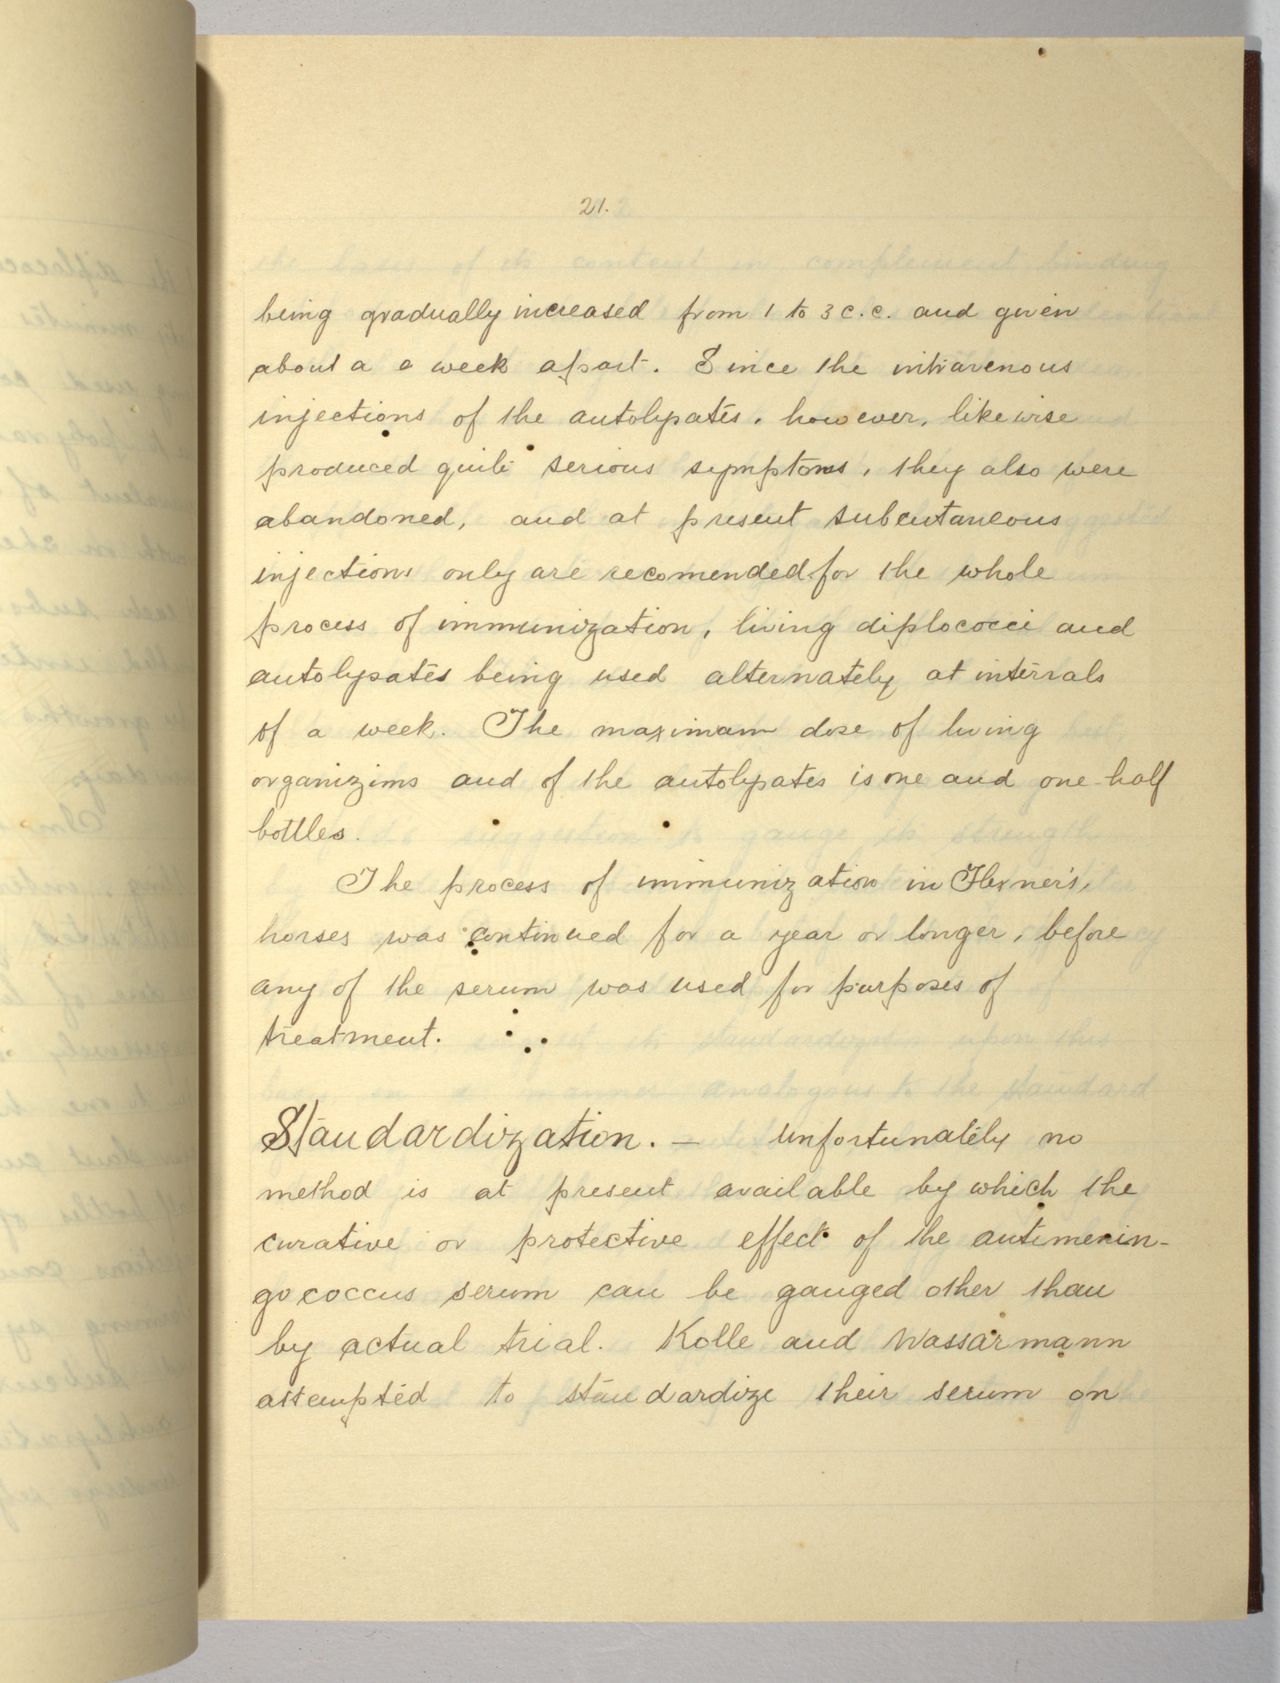 21.
being gradually increased from 1 to 3 c.c. and given
about a a week apart. Since the intravenous
injections of the autolypates, however, likewise
produced quite serious symptoms, they also were
abandoned, and at present subcutaneous
injections only are recomended for the whole
process of immunization, living diplococci and
autolypates being used alternately at intervals
of a week. The maximam dose of living
organizims and of the autolypates is one and one-half
bottles.
The process of immunization in Flexner's,
horses was continued for a year or longer, before
any of the serum was used for purposes of
treatment.
Standardization. — Unfortunately no
method is at present available by which the
curative or protective effect of the antimenin-
gococcus serum can be gauged other than
by actual trial. Kolle and Wassarmann
attempted to standardize their serum on